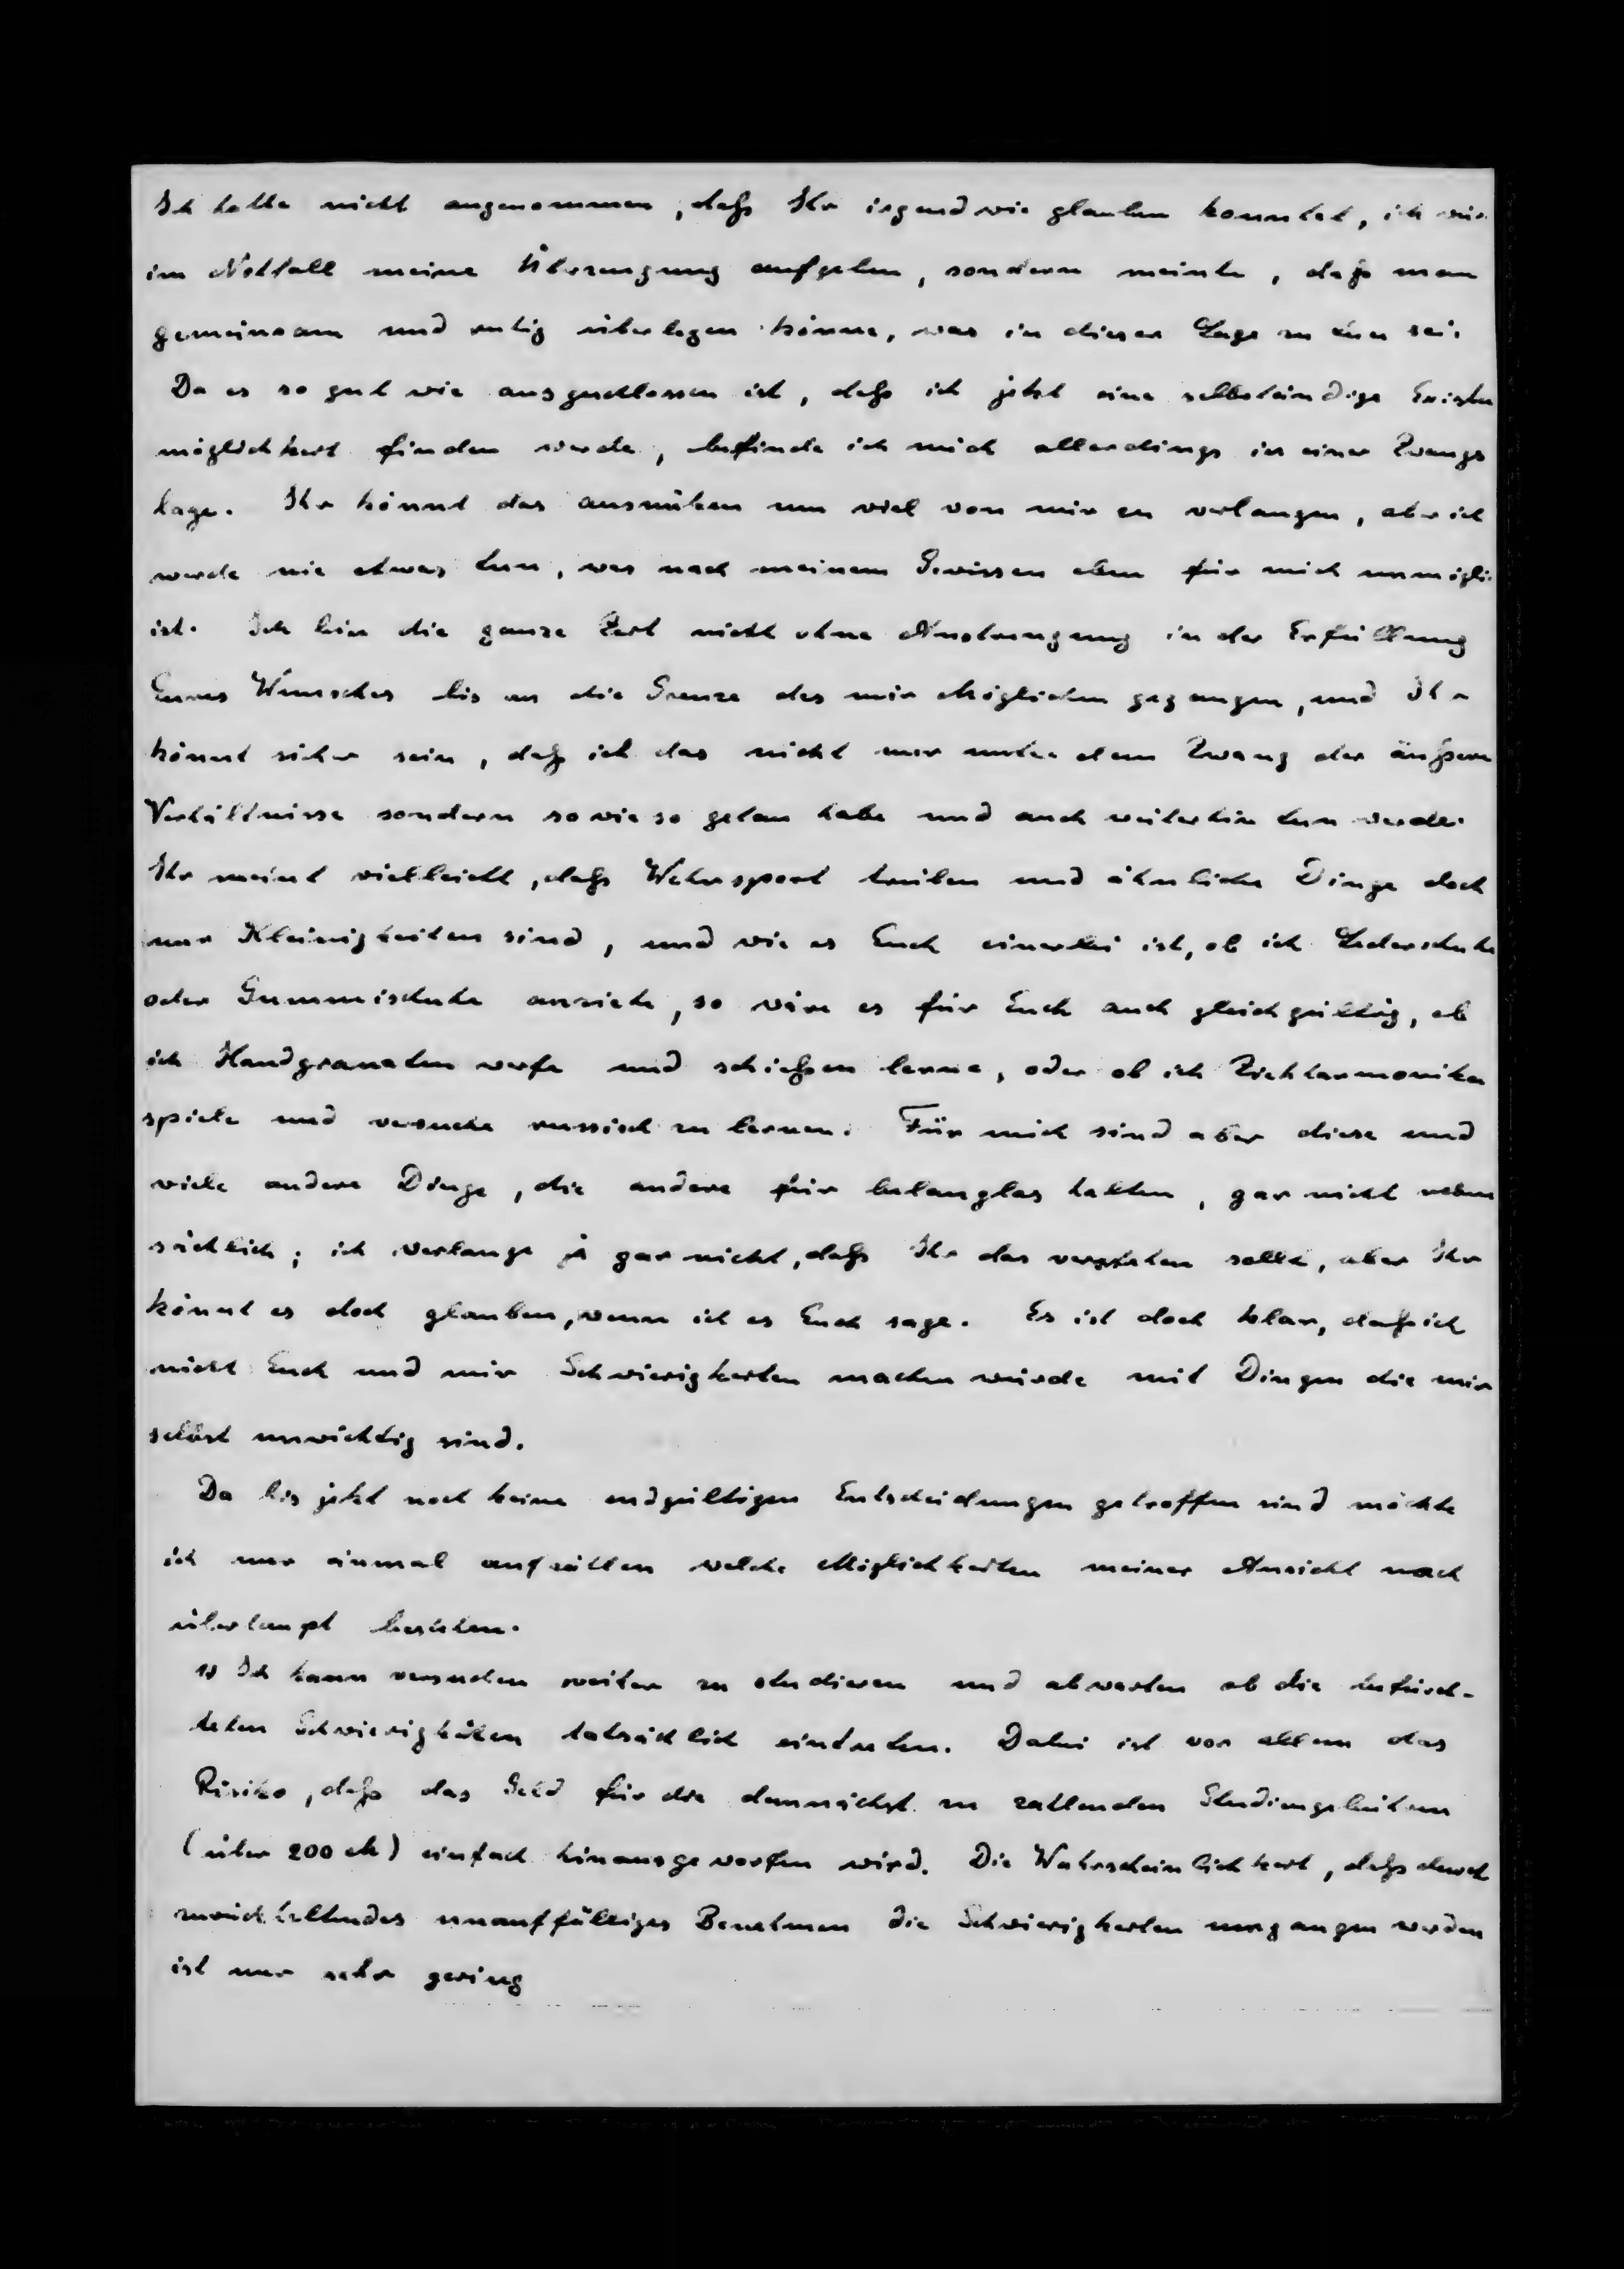 Ich hatte nicht angenommen, daß Ihr irgendwie glauben konntet, ich
im Notfall meine Überzeugung aufgeben, sondern meinte, daß man
gemeinsam und ruhig überlegen könne, was in dieser Lage zu tun sei.
Da es so gut wie ausgeschlossen ist, daß ich jetzt eine selbständige
möglichkeit finden werde, befinde ich mich allerdings in einer Zwangs
lage. Ihr könnt das ausnützen um viel von mir zu verlangen, aber ich
werde nie etwas tun, was nach meinem Gewissen eben für mich unmögli
ist. Ich bin die ganze Zeit nicht ohne Anstrengung in der Erfüllung
Eures Wunsches bis an die Grenze des mir Möglichen gegangen, und Ihr
könnt sicher sein, daß ich das nicht nur unter dem Zwang der äußeren
Verhältnisse sondern sowieso getan habe und auch weiterhin tun werde.
Ihr meint vielleicht, daß Wehrsport treiben und ähnliche Dinge doch
nur Kleinigkeiten sind, und wie es Euch einerlei ist, ob ich Lederschuhe
oder Gummischuhe anziehe, so wäre es für Euch auch gleichgültig, ob
ich Handgranaten werfe und schießen lerne, oder ob ich Ziehharmonika
spiele und versuche russisch zu lernen. Für mich sind aber diese und
viele andere Dinge, die andere für belanglos halten, gar nicht neben
sächlich; ich verlange ja gar nicht, daß Ihr das verstehen sollt, aber Ihr
könnt es doch glauben, wenn ich es Euch sage. Es ist doch klar, daß ich
nicht Euch und mir Schwierigkeiten machen würde mit Dingen die mir
selbst unwichtig sind.
Da bis jetzt noch keine endgültigen Entscheidungen getroffen sind möchte
ich nur einmal aufzählen welche Möglichkeiten meiner Ansicht nach
überhaupt bestehen.
1) Ich kann versuchen weiter zu studieren und abwarten ob die befürch-
teten Schwierigkeiten tatsächlich eintreten. Dabei ist vor allem das
Risiko, daß das Geld für die demnächst zu zahlenden Studiengebühren
(über 200 M) einfach hinausgeworfen wird. Die Wahrscheinlichkeit, daß durch
zurückhaltendes unauffälliges Benehmen die Schwierigkeiten umgangen werden
ist nur sehr gering